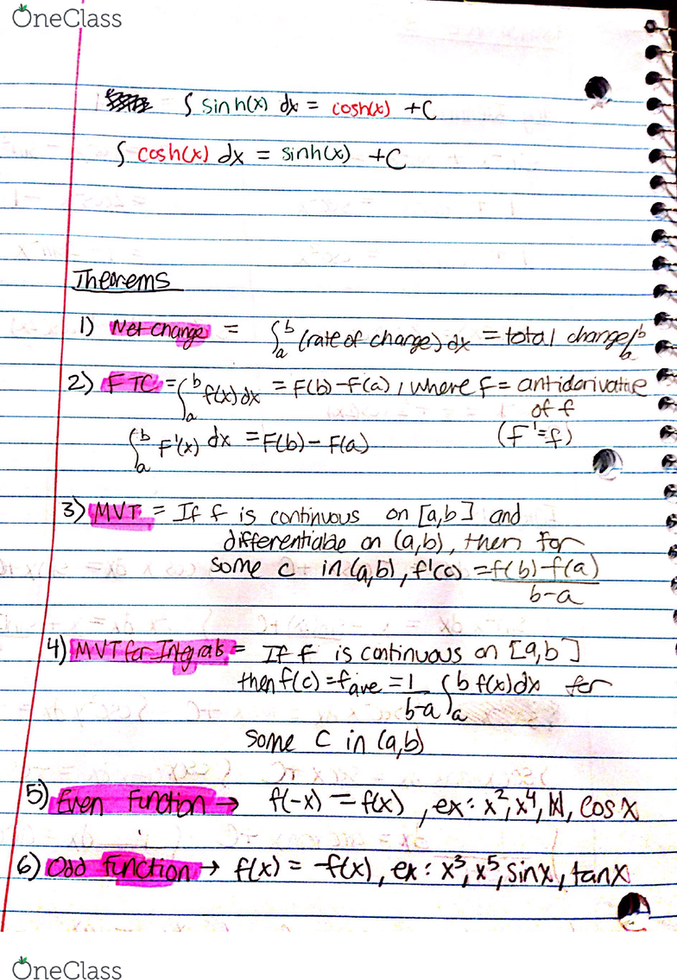 OneClass
∫ sinh(x) dx = cosh(x) +C
∫ cosh(x) dx = sinh(x) +C
Theorems
1) Net change = ∫_a^b (rate of change) dx = total change|_a^b
2) FTC = ∫_a^b f(x) dx = F(b)-F(a), where F = antiderivative
of f
∫_a^b F'(x) dx = F(b) - F(a) (F'=f)
3) MVT = If f is continuous on [a,b] and
differentiable on (a,b), then for
some c in (a,b), f'(c) = f(b)-f(a)
b-a
4) MVT for Integrals = If f is continuous on [a,b]
then f(c) = f_ave = 1/b-a ∫_a^b f(x)dx for
some C in (a,b)
5) Even Function → f(-x) = f(x), ex: x², x⁴, |x|, cosx
6) Odd function → f(x) = -f(x), ex: x³, x⁵, sinx, tanx
OneClass